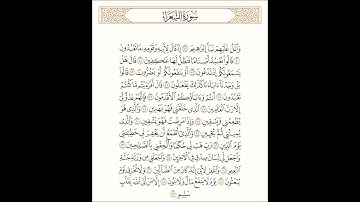 سُورَةُ الشُّعَرَاءِ
وَٱتْلُ عَلَيْهِمْ نَبَأَ إِبْرَٰهِيمَ إِذْ قَالَ لِأَبِيهِ وَقَوْمِهِۦ مَا تَعْبُدُونَ
قَالُوا۟ نَعْبُدُ أَصْنَامًا فَنَظَلُّ لَهَا عَٰكِفِينَ قَالَ هَلْ
يَسْمَعُونَكُمْ إِذْ تَدْعُونَ أَوْ يَنفَعُونَكُمْ أَوْ يَضُرُّونَ قَالُوا۟
بَلْ وَجَدْنَآ ءَابَآءَنَا كَذَٰلِكَ يَفْعَلُونَ قَالَ أَفَرَءَيْتُم مَّا كُنتُمْ
تَعْبُدُونَ أَنتُمْ وَءَابَآؤُكُمُ ٱلْأَقْدَمُونَ فَإِنَّهُمْ عَدُوٌّ لِّىٓ
إِلَّا رَبَّ ٱلْعَٰلَمِينَ ٱلَّذِى خَلَقَنِى فَهُوَ يَهْدِينِ وَٱلَّذِى هُوَ
يُطْعِمُنِى وَيَسْقِينِ وَإِذَا مَرِضْتُ فَهُوَ يَشْفِينِ وَٱلَّذِى
يُمِيتُنِى ثُمَّ يُحْيِينِ وَٱلَّذِىٓ أَطْمَعُ أَن يَغْفِرَ لِى خَطِيٓـَٔتِى
يَوْمَ ٱلدِّينِ رَبِّ هَبْ لِى حُكْمًا وَأَلْحِقْنِى بِٱلصَّٰلِحِينَ
وَٱجْعَل لِّى لِسَانَ صِدْقٍ فِى ٱلْءَاخِرِينَ وَٱجْعَلْنِى مِن وَرَثَةِ جَنَّةِ
ٱلنَّعِيمِ وَٱغْفِرْ لِأَبِىٓ إِنَّهُۥ كَانَ مِنَ ٱلضَّآلِّينَ وَلَا تُخْزِنِى يَوْمَ
يُبْعَثُونَ يَوْمَ لَا يَنفَعُ مَالٌ وَلَا بَنُونَ إِلَّا مَنْ أَتَى ٱللَّهَ بِقَلْبٍ
سَلِيمٍ